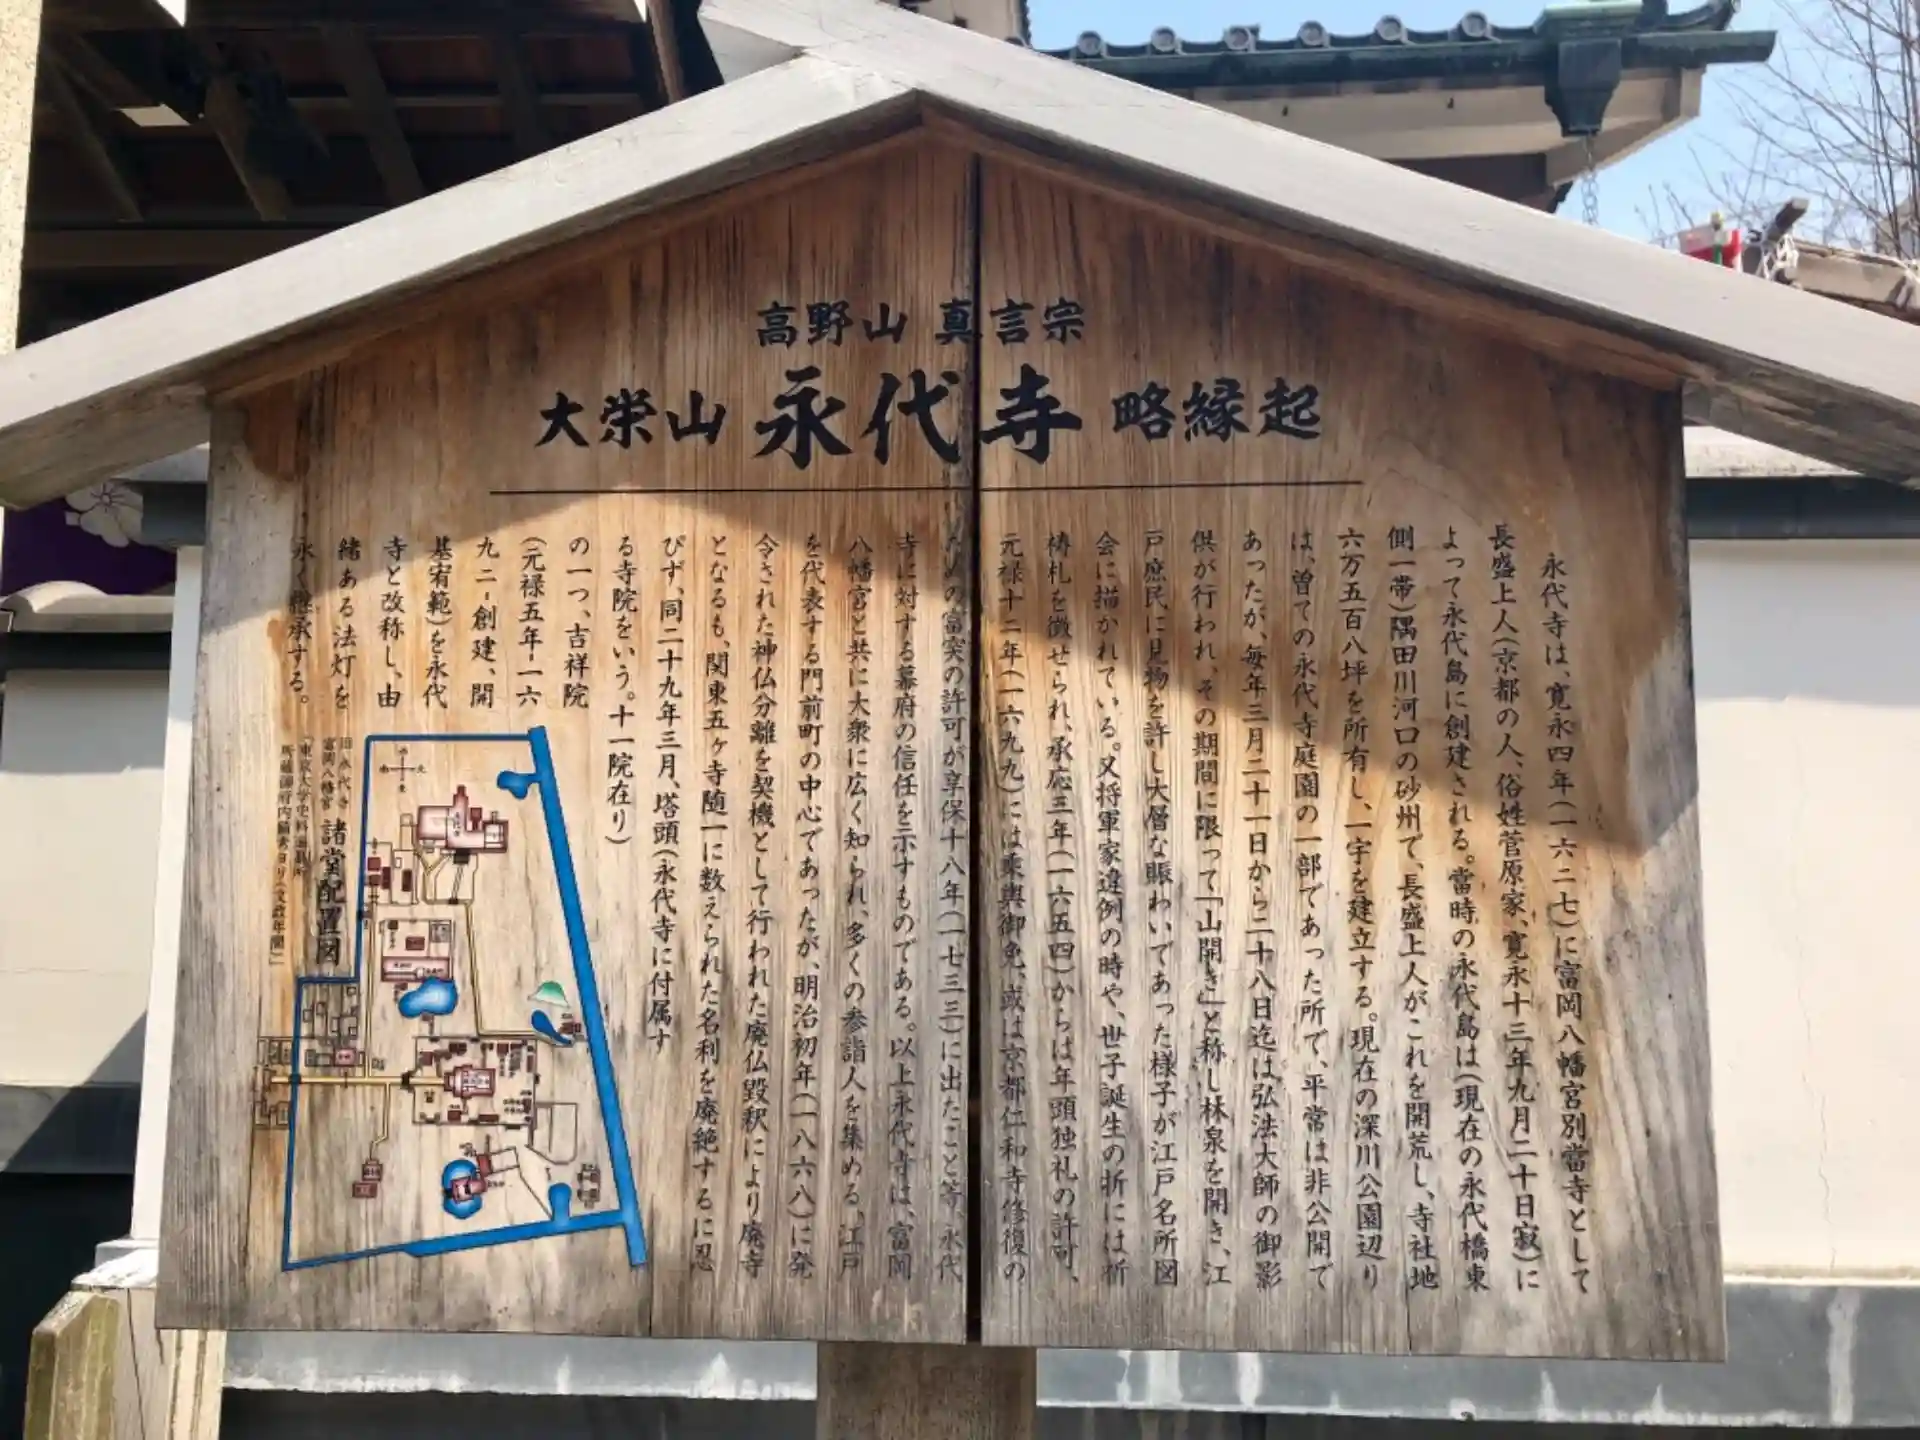 高野山 真言宗
大栄山 永代寺 略縁起
永代寺は、寛永四年(一六二七)に富岡八幡宮別當寺として
長盛上人(京都の人、俗姓菅原家、寛永十三年九月二十日寂)に
よって永代島に創建される。當時の永代島は(現在の永代橋東
側一帯)隅田川河口の砂州で、長盛上人がこれを開荒し、寺社地
六万五百八坪を所有し、一宇を建立する。現在の深川公園辺り
は、曽ての永代寺庭園の一部であった所で、平常は非公開で
あったが、毎年三月二十一日から二十八日迄は弘法大師の御影
供が行われ、その期間に限って「山開き」と称し林泉を開き、江
戸庶民に見物を許し大層な賑わいであった様子が江戸名所図
会に描かれている。又将軍家違例の時や、世子誕生の折には祈
祷札を徴せられ、承応三年(一六五四)からは年頭独礼の許可、
元禄十二年(一六九九)には乗輿御免、或は京都仁和寺修復の
ための富突の許可が享保十八年(一七三三)に出たこと等、永代
寺に対する幕府の信任を示すものである。以上永代寺は、富岡
八幡宮と共に大衆に広く知られ、多くの参詣人を集める。江戸
を代表する門前町の中心であったが、明治初年(一八六八)に発
令された神仏分離を契機として行われた廃仏毀釈により廃寺
となるも、関東五ヶ寺随一に数えられた名刹を廃絶するに忍
びず、同二十九年三月、塔頭(永代寺に付属す
る寺院をいう。十一院在り)
の一つ、吉祥院
(元禄五年-一六
九二-創建、開
基宥範)を永代
寺と改称し、由
緒ある法灯を
永く継承する。
旧永代寺
富岡八幡宮 諸堂配置図
「東京大学史料編纂所
所蔵御府内備考ヨリ(文政年間)」